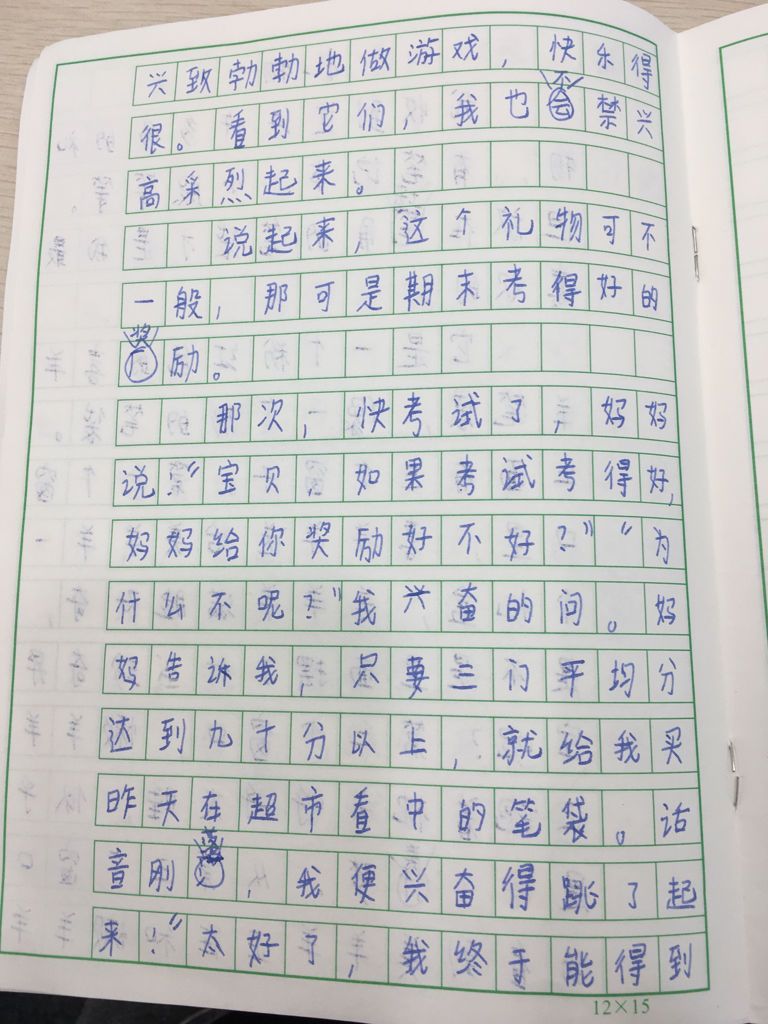 兴致勃勃地做游戏，快乐得
很。看到它们，我也不禁兴
高采烈起来。
说起来，这个礼物可不
一般，那可是期末考得好的
奖励。
那次，快考试了，妈妈
说：“宝贝，如果考试考得好，
妈妈给你奖励好不好？”“为
什么不呢？”我兴奋的问。妈
妈告诉我，只要三门平均分
达到九十分以上，就给我买
昨天在超市看中的笔袋。话
音刚落，我便兴奋得跳了起
来：“太好了，我终于能得到
12×15